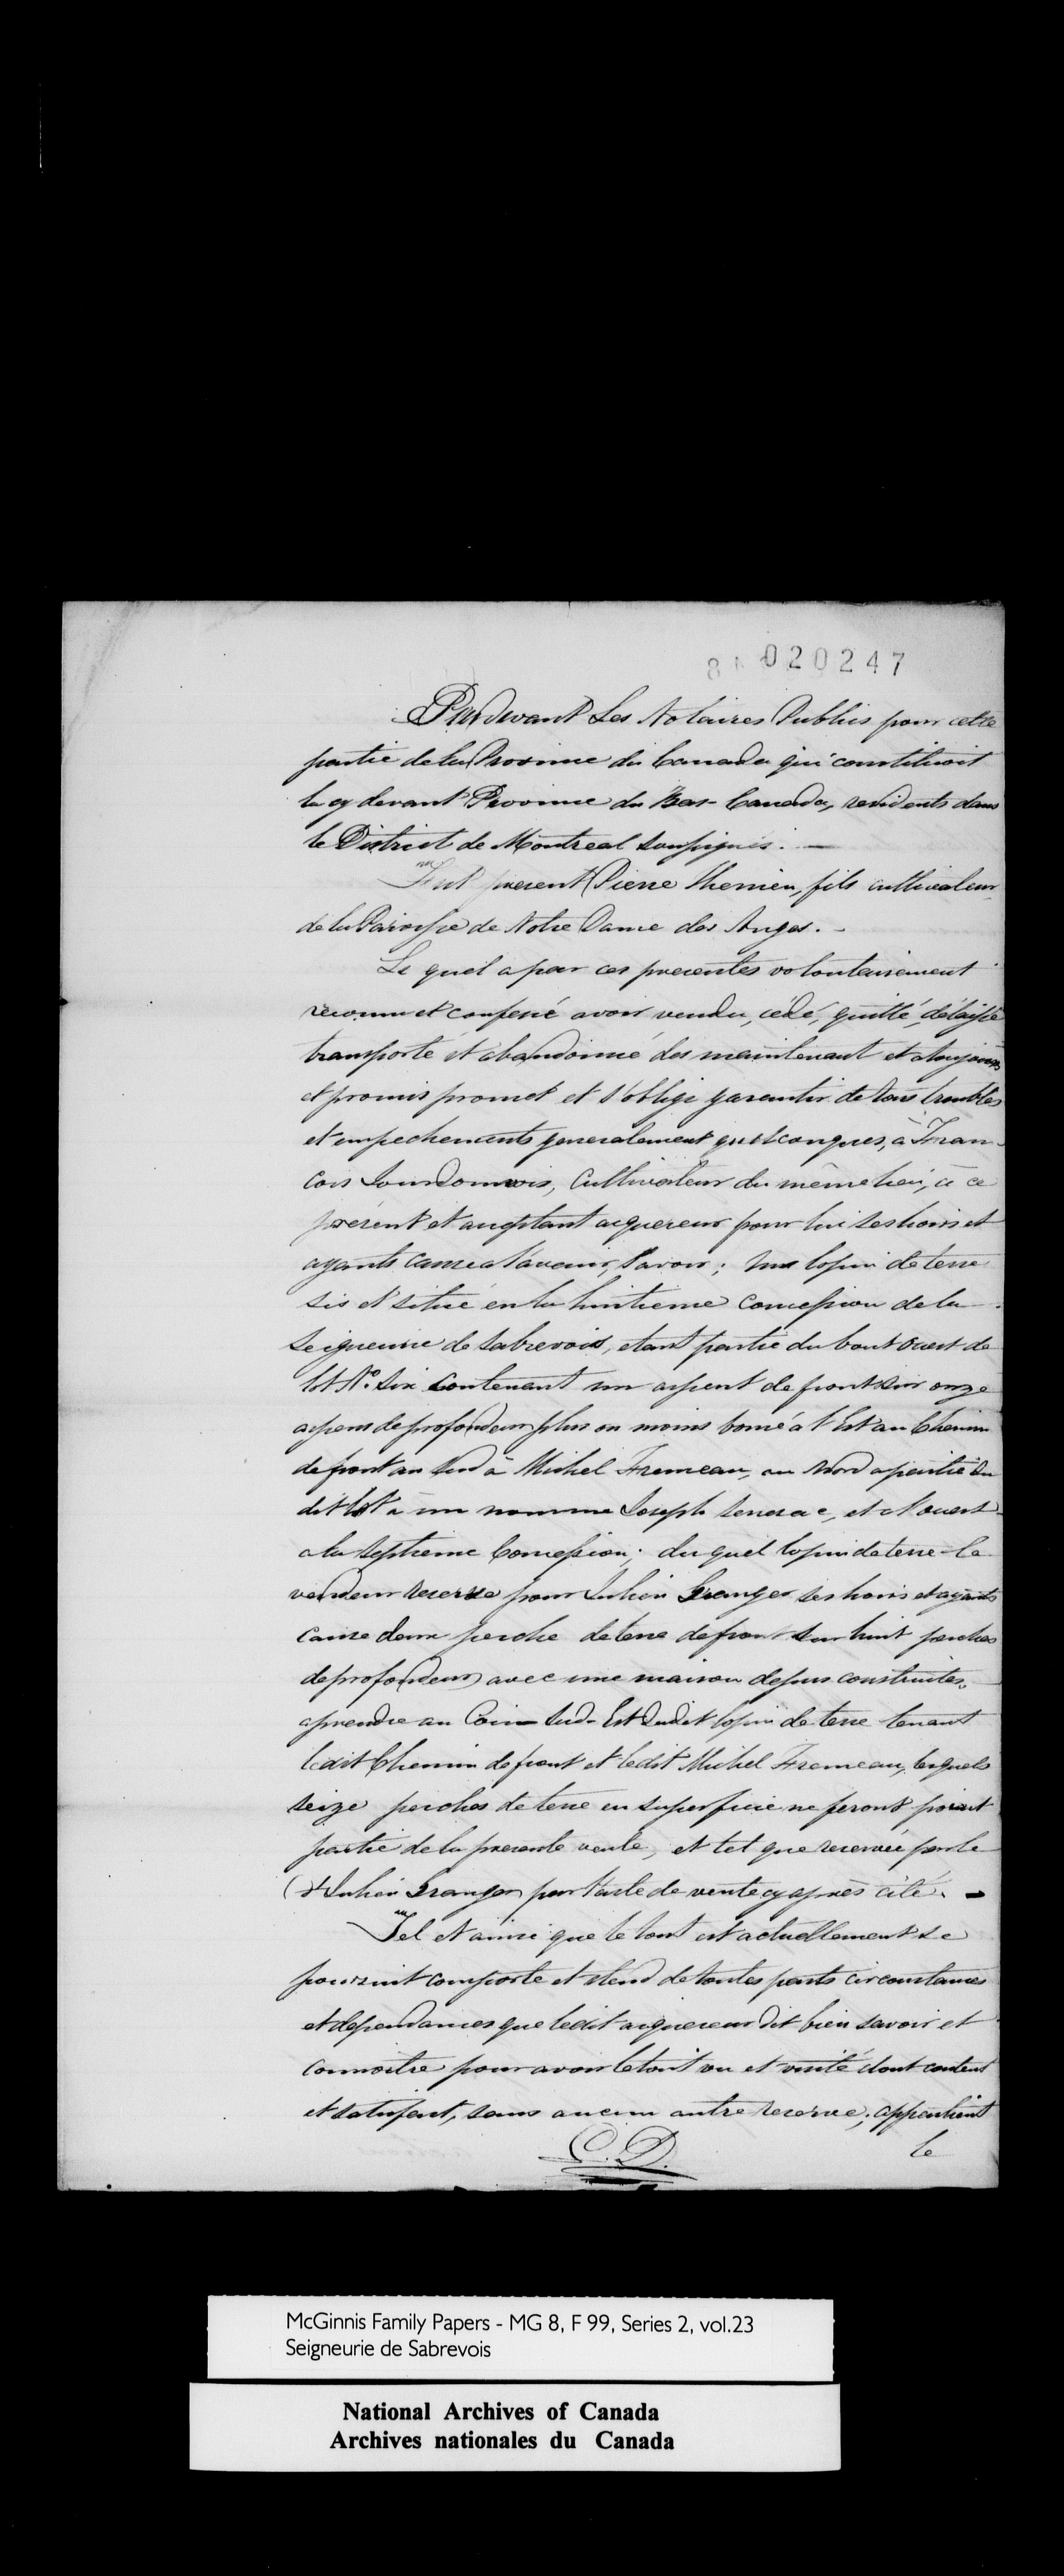 020247
Pardevant Les Notaires Publics pour cette
partie de la Province du Canada qui constituoit
la cy devant Province du Bas-Canada, residents dans
le District de Montreal soussignés. —
Fut present Pierre Therrien, fils cultivateur
de la Paroisse de Notre Dame des Anges. -
Le quel a par ces presentes volontairement
reconnu et confessé avoir vendu, cédé, quitté, délaissé
transporté et abandonné des maintenant et atoujours
et promis promet et s'oblige garentir de tous troubles
et empechements generalement quelconques, à Fran-
cois Bourdonnais, Cultivateur du même lieu, à ce
présent et acceptant acquereur pour lui ses hoirs et
ayants cause a l'avenir, Savoir; un lopin de terre
sis et situé en la huitieme Concession de la
Seigneurie de Sabrevois, etant partie du bout ouest de
lot No. Six Contenant un arpent de front sur onze
arpens de profondeur plus ou moins borné à l'Est au Chemin
de front au Sud à Michel Fremeau, au Nord a partie du
dit lot a un nommé Joseph Senecac, et al'ouest
a la Septieme Concession; du quel lopin de terre le
vendeur reserve pour Julien Granger ses hoirs et ayants
cause deux perche de terre de front sur huit perches
de profondeur avec une maison dessus construites,
aprendre au Coin Sud-Est dudit lopin de terre tenant
ledit Chemin de front et ledit Michel Fremeau, lesquels
seize perches de terre en superficie ne feront point
partie de la presente vente, et tel que reservée par le
dt Julien Granger par l'acte de vente cy après cité. —
Tel et ainsi que le tout est actuellement se
poursuit comporte et etend de toutes parts circonstances
et dependances que ledit acquereur dit bien savoir et
connoitre pour avoir le tout vu et visité dont content
et satisfait, sans aucun autre reserve; appartient
C. D.
le
McGinnis Family Papers - MG 8, F 99, Series 2, vol.23
Seigneurie de Sabrevois
National Archives of Canada
Archives nationales du Canada